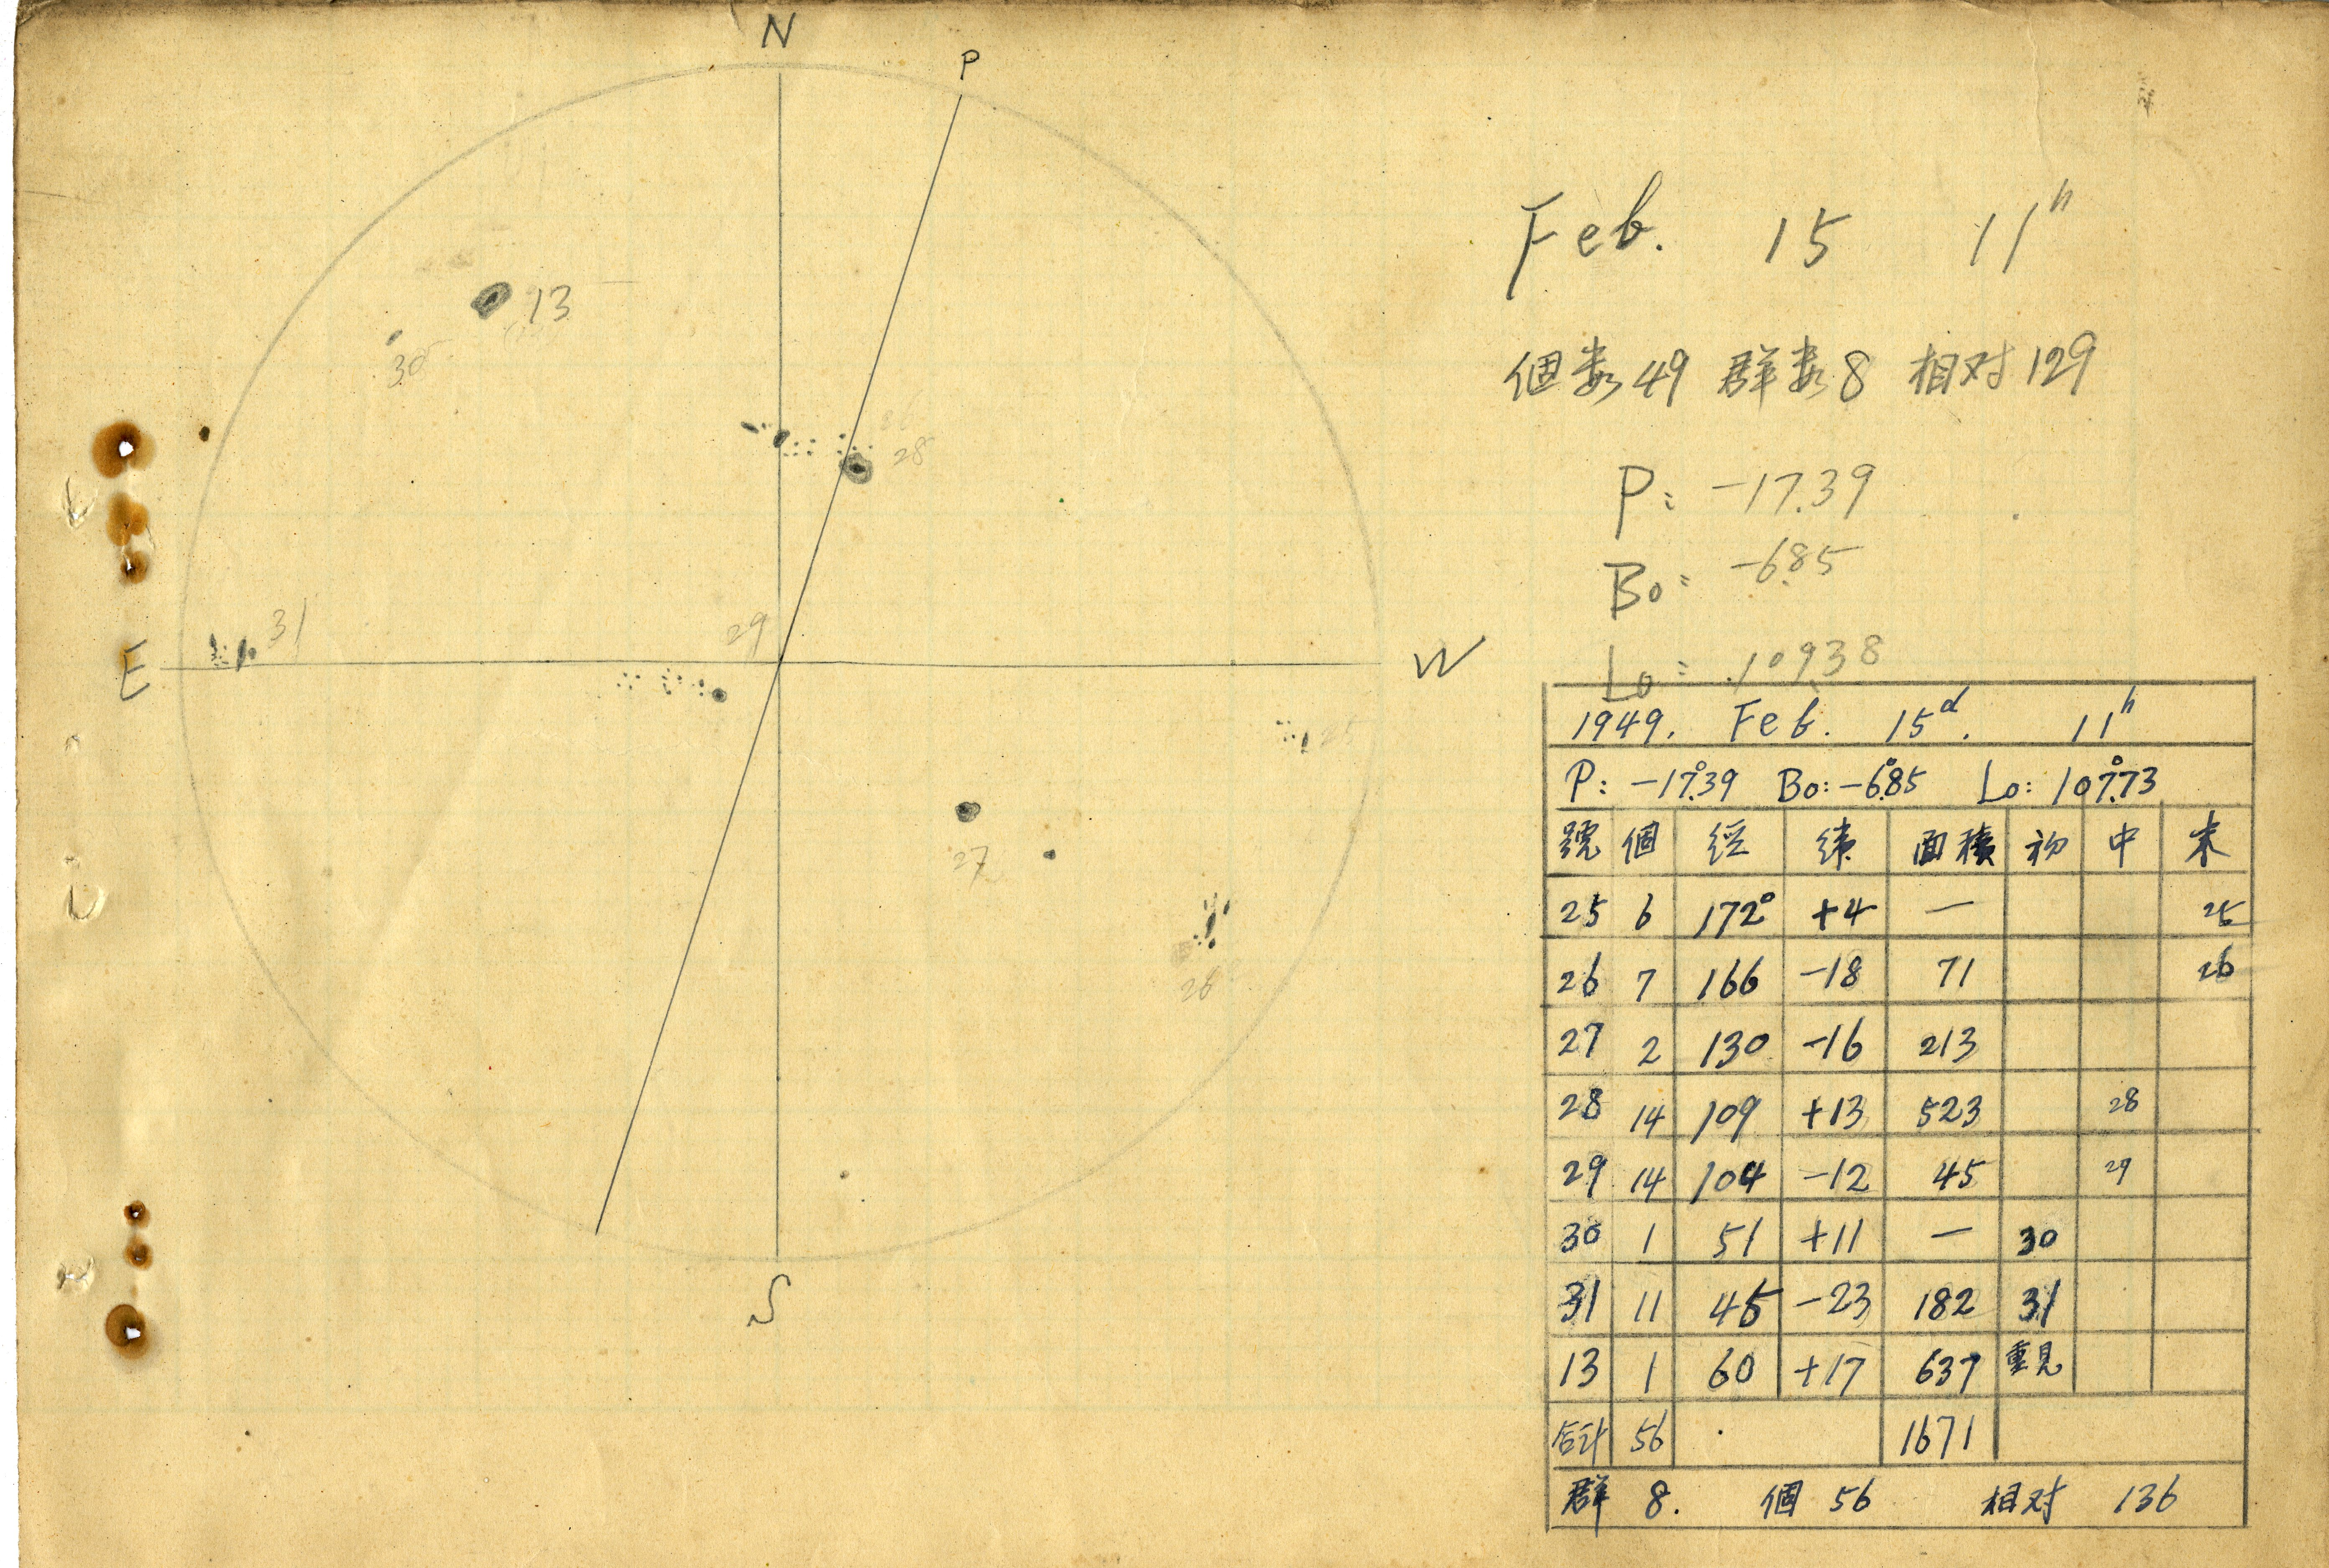 N
P
13
30
28
31
29
E
W
25
27
26
S
Feb. 15 11h
個数 49 群数 8 相対 129
P: -17.39
Bo: -6.85
Lo: 109.38
1949. Feb. 15d. 11h
P: -17°.39 Bo: -6°.85 Lo: 107°.73
號 個 経 緯 面積 初 中 末
25 6 172° +4 — 25
26 7 166 -18 71 26
27 2 130 -16 213
28 14 109 +13 523 28
29 14 104 -12 45 29
30 1 51 +11 — 30
31 11 45 -23 182 31
13 1 60 +17 637 重見
合計 56 1671
群 8. 個 56 相対 136